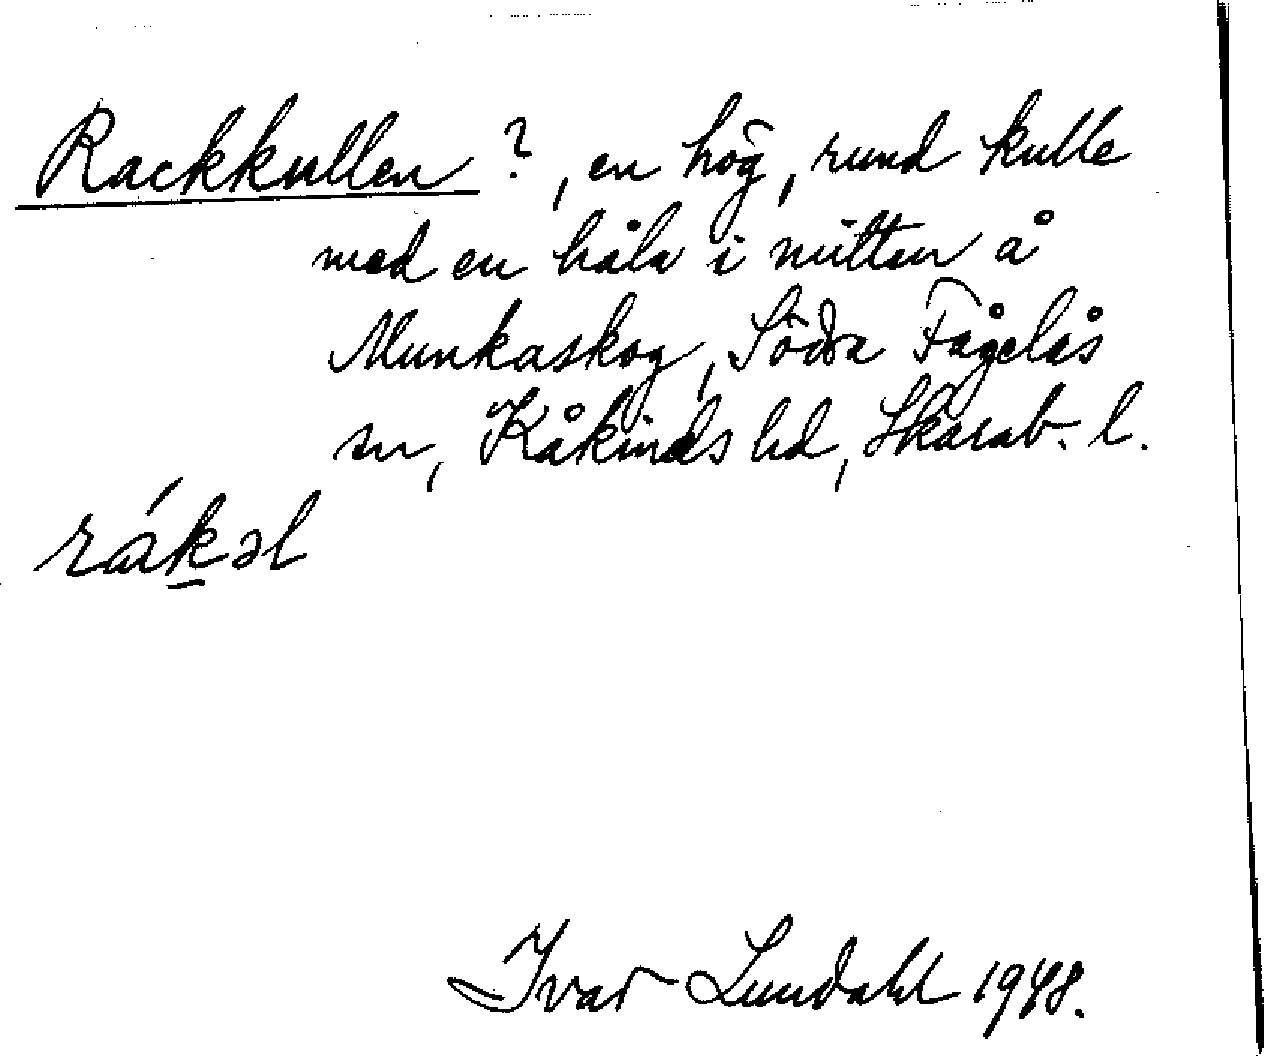 Rackkullen ?, en hög, rund kulle
med en håla i mitten å
Munkaskog, Södra Fågelås
sn, Kåkinds hd, Skarab. l.
rákəl
Ivar Lundahl 1948.